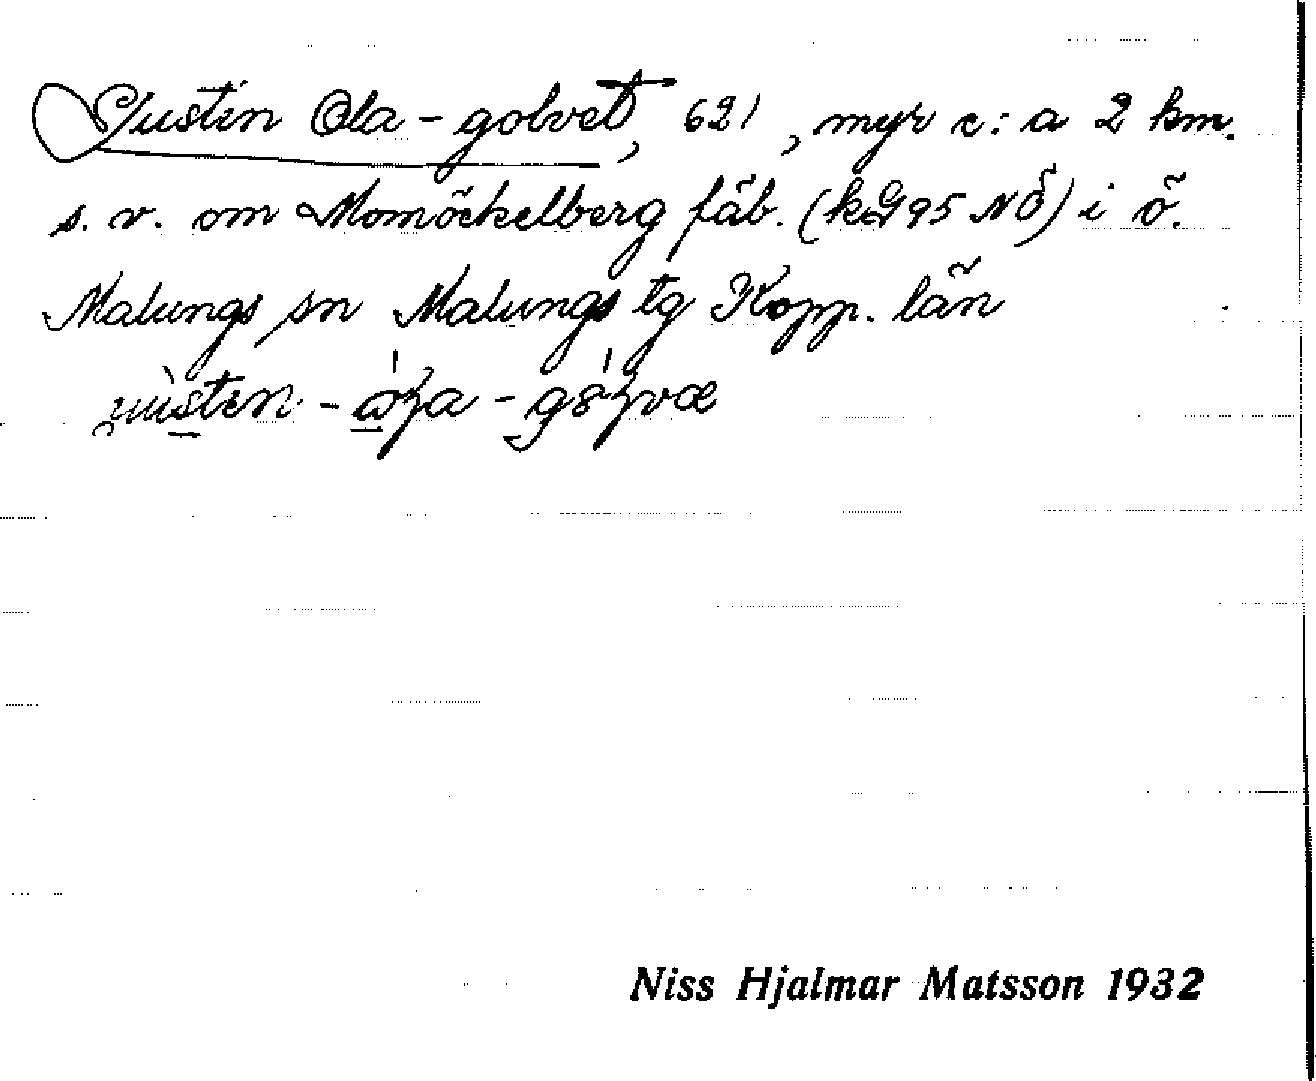 Justin Ola-golvet, 621, myr c:a 2 km.
s. v. om Momöckelberg fäb. (kG95 NÖ) i ö.
Malungs sn Malungs tg Kopp. län
Niss Hjalmar Matsson 1932